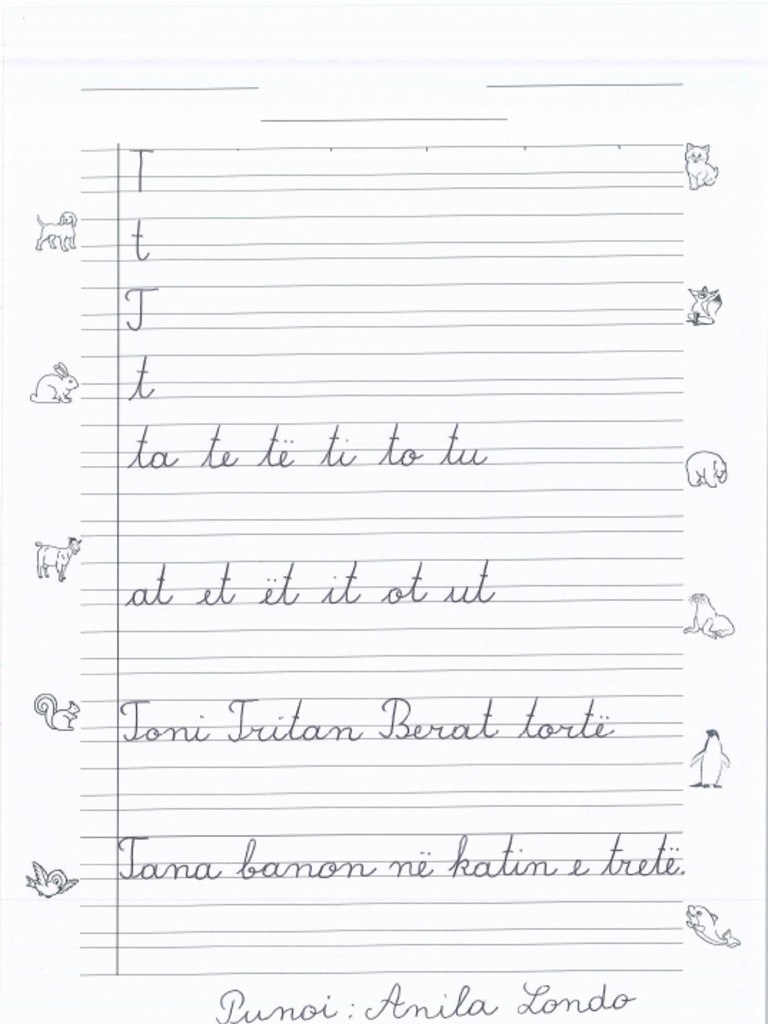 T
t
T
t
ta te të ti to tu
at et ët it ot ut
Toni Tritan Berat tortë
Tana banon në katin e tretë.
Punoi : Anila Londo